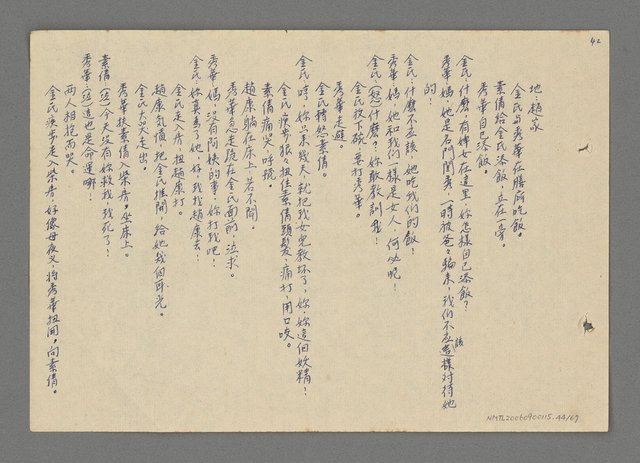 42
地 趙家
金氏与秀華在膳廳吃飯。
素倩給金氏添飯,立在一旁。
秀華自己添飯。
金氏:什麼,有婢女在這里,妳怎樣自己添飯?
秀華:媽,她是名門閨秀,一時被爸々騙來,我们不应該這樣对待她
的!
金氏:什麼不应該,她吃我们的飯!
秀華:媽,她和我们一樣是女人,何必呢!
金氏:(怒)什麼?妳敢教訓我!
金氏放下碗,要打秀華。
秀華走避。
金氏轉怒素倩。
金氏:哼,妳只來幾天,就把我女兒教坏了,妳,妳這個妖精!
金氏疾步狠々扭住素倩頭髮,痛打,用口咬。
素倩痛哭,呼饒。
趙康躺在床上,若不聞。
秀華急忙跪在金氏面前,泣求。
秀華:媽,沒有阿倩的事,妳打我吧!
金氏:妳真為了她,好,我找趙康去!
金氏走入房,扭趙康打。
趙康氣憤,把金氏推開,給她幾個耳光。
金氏大哭走出。
秀華扶素倩入柴房,坐床上。
素倩:(泣)今天沒有妳救我,我死了!
秀華:(泣)這也是命運哪!
两人相抱而哭。
金氏疾步走入柴房,好像母夜叉,将秀華扭開,向素倩。
NMTL20060900115.44/69